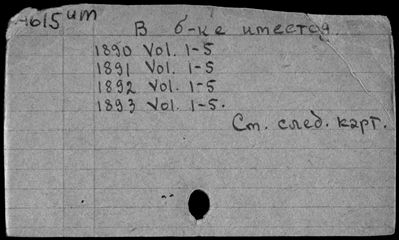 615 ит
В б-ке имеется
1890 Vol. 1-5
1891 Vol. 1-5
1892 Vol. 1-5
1893 Vol. 1-5.
Ст. след. карт.